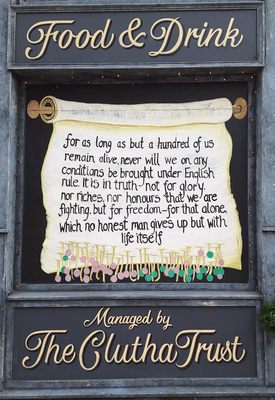 Food & Drink
for as long as but a hundred of us
remain alive, never will we on any
conditions be brought under English
rule. It is in truth not for glory,
nor riches, nor honours that we are
fighting, but for freedom – for that alone,
which no honest man gives up but with
life itself
Managed by
The Clutha Trust